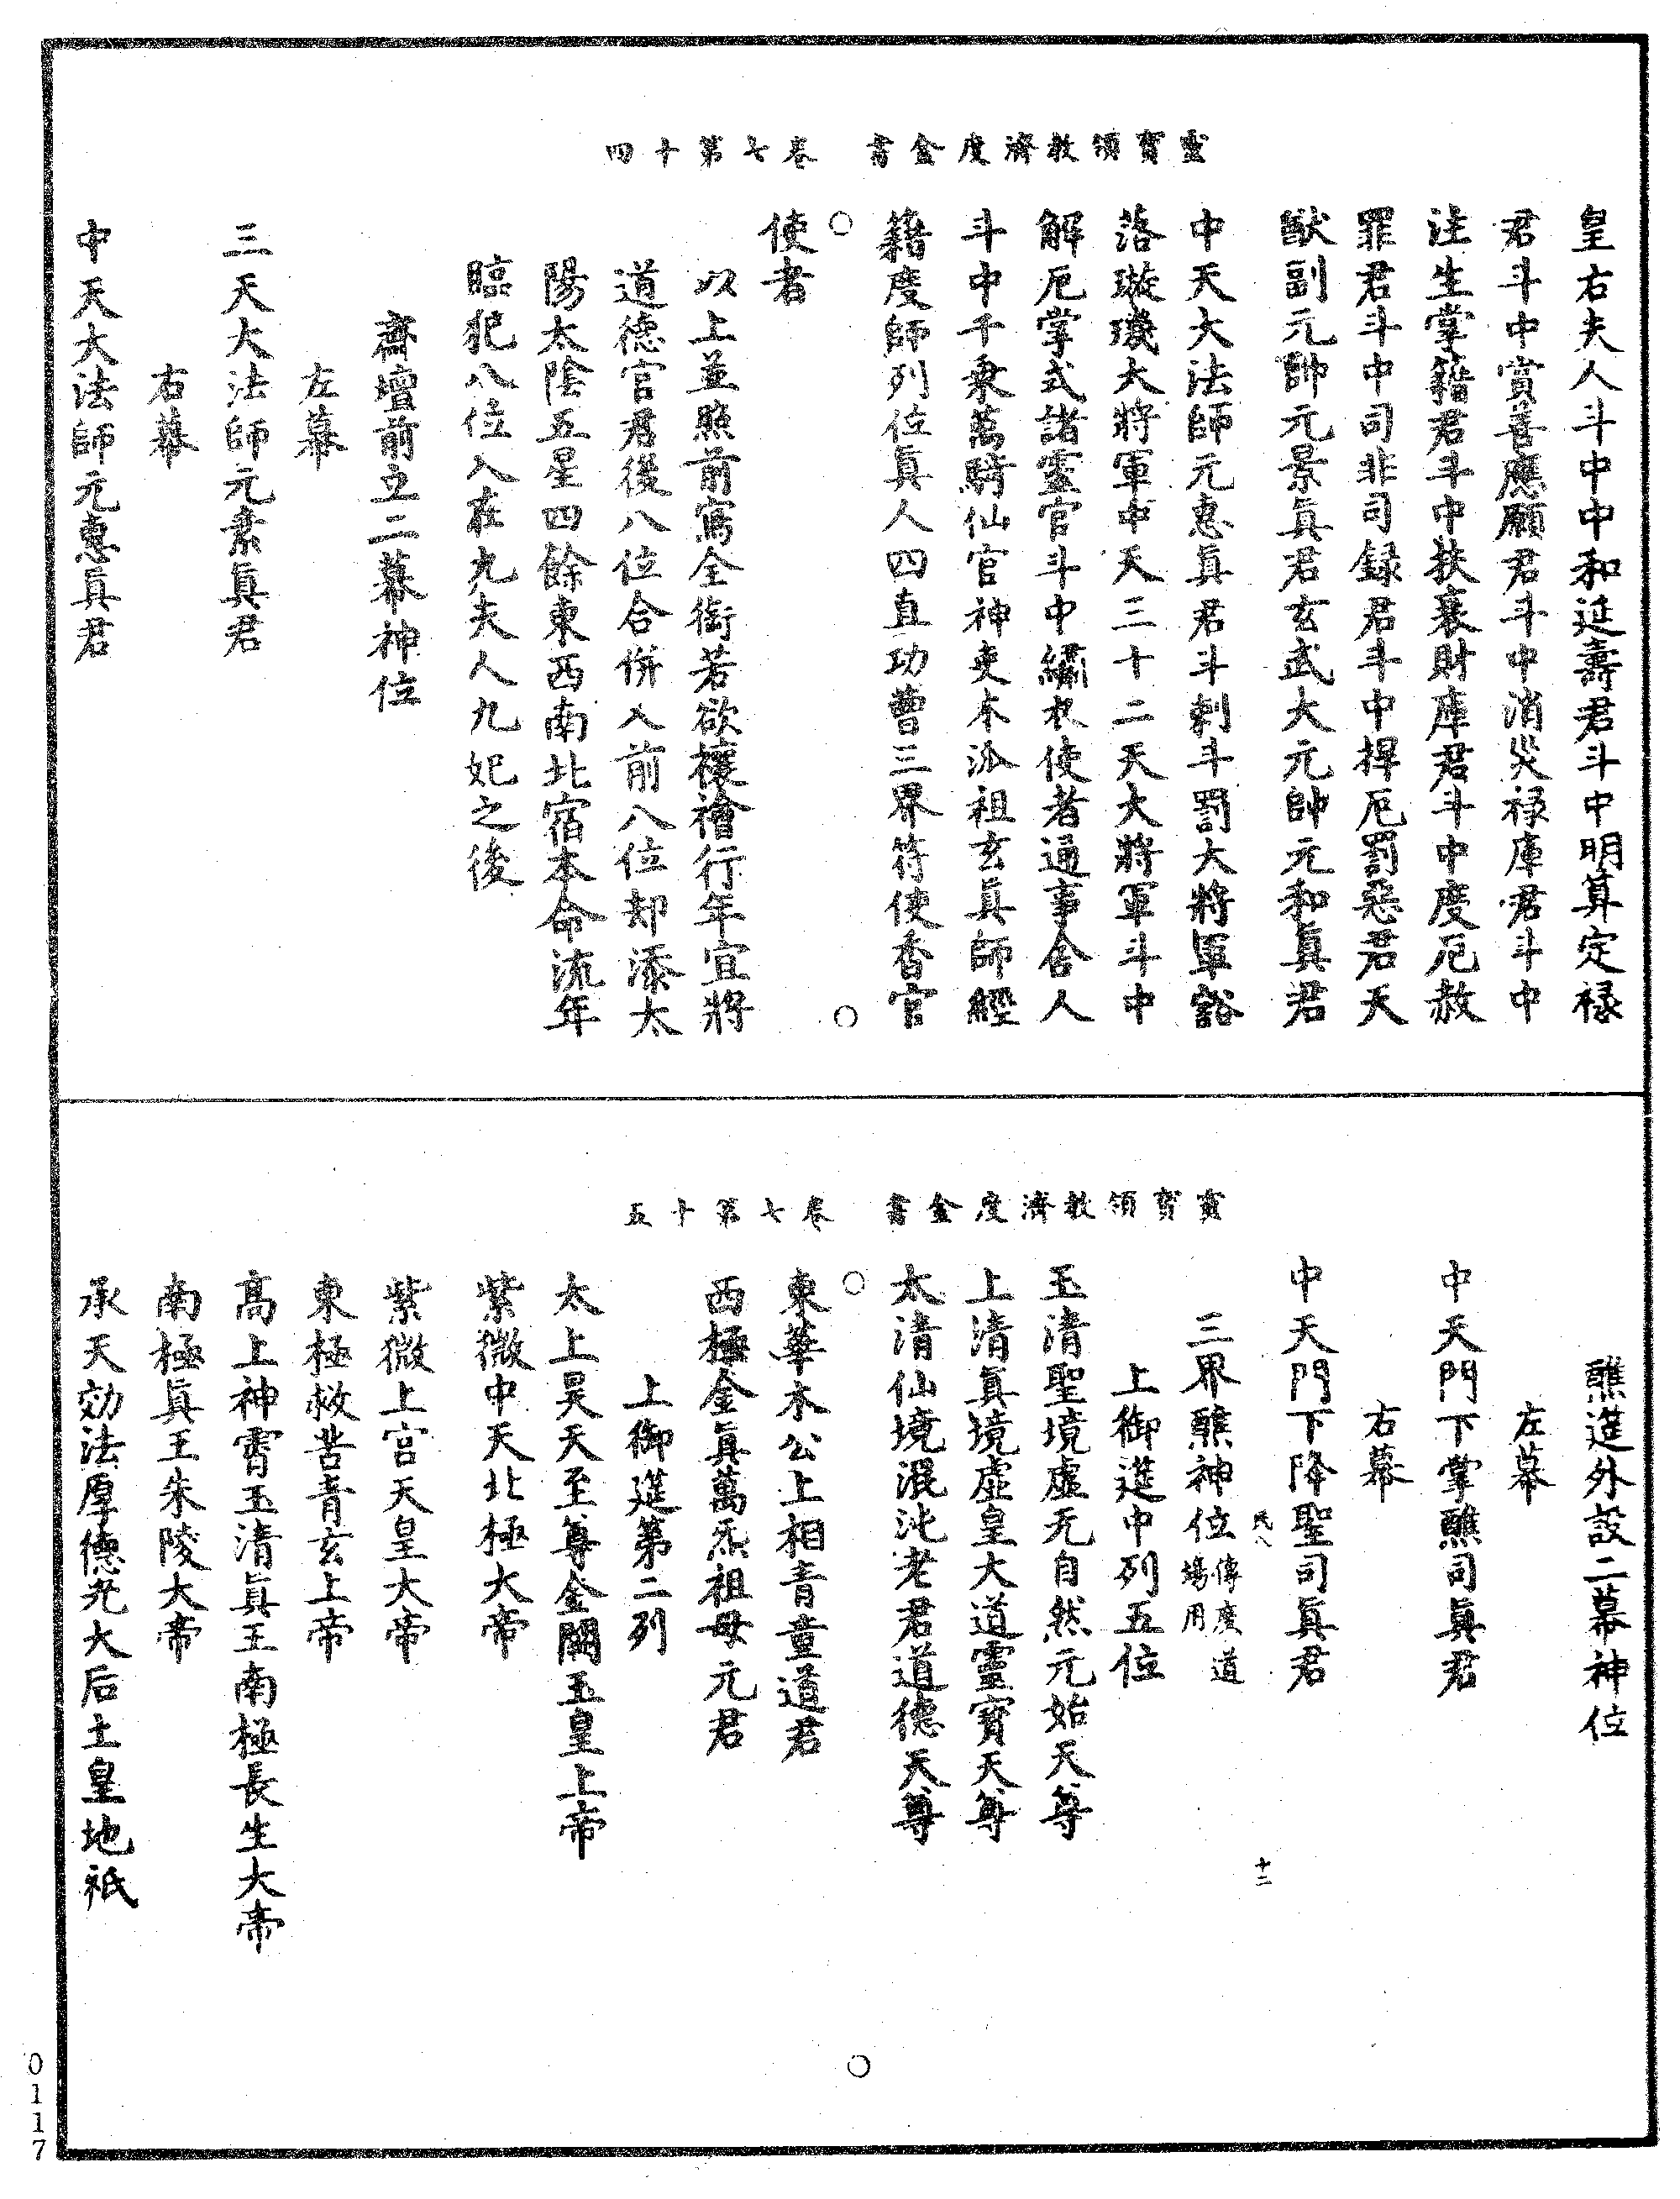 靈寶領教濟度金書　卷七第十四
皇右夫人斗中中和延壽君斗中明算定祿
君斗中賞善應願君斗中消災祿庫君斗中
注生掌籍君斗中扶衰財庫君斗中度厄赦
罪君斗中司非司録君斗中捍厄罰惡君天
猷副元帥元景眞君玄武大元帥元和眞君
中天大法師元惠眞君斗剌斗罰大將軍豁
落璇璣大將軍中天三十二天大將軍斗中
解厄掌式諸靈官斗中繡衣使者通事舍人
斗中千乘萬騎仙官神吏本派祖玄眞師經
籍度師列位眞人四直功曹三界符使香官
使者
以上並照前寫全銜若欲禳禬行年宜將
道德官君後八位合併入前八位却添太
陽太陰五星四餘東西南北宿本命流年
臨犯八位入在九夫人九妃之後
齋壇前立二幕神位
左幕
三天大法師元素眞君
右幕
中天大法師元惠眞君
靈寶領教濟度金書　卷七第十五
醮筵外設二幕神位
左幕
中天門下掌醮司眞君
右幕
中天門下降聖司眞君
三界醮神位傳度道場用
上御筵中列五位
玉清聖境虛无自然元始天尊
上清眞境虛皇大道靈寶天尊
太清仙境混沌老君道德天尊
東華木公上相青童道君
西極金眞萬炁祖母元君
上御筵第二列
太上昊天至尊金闕玉皇上帝
紫微中天北極大帝
紫微上宫天皇大帝
東極救苦青玄上帝
高上神霄玉清眞王南極長生大帝
南極眞王朱陵大帝
承天効法厚德光大后土皇地祇
十二
0117